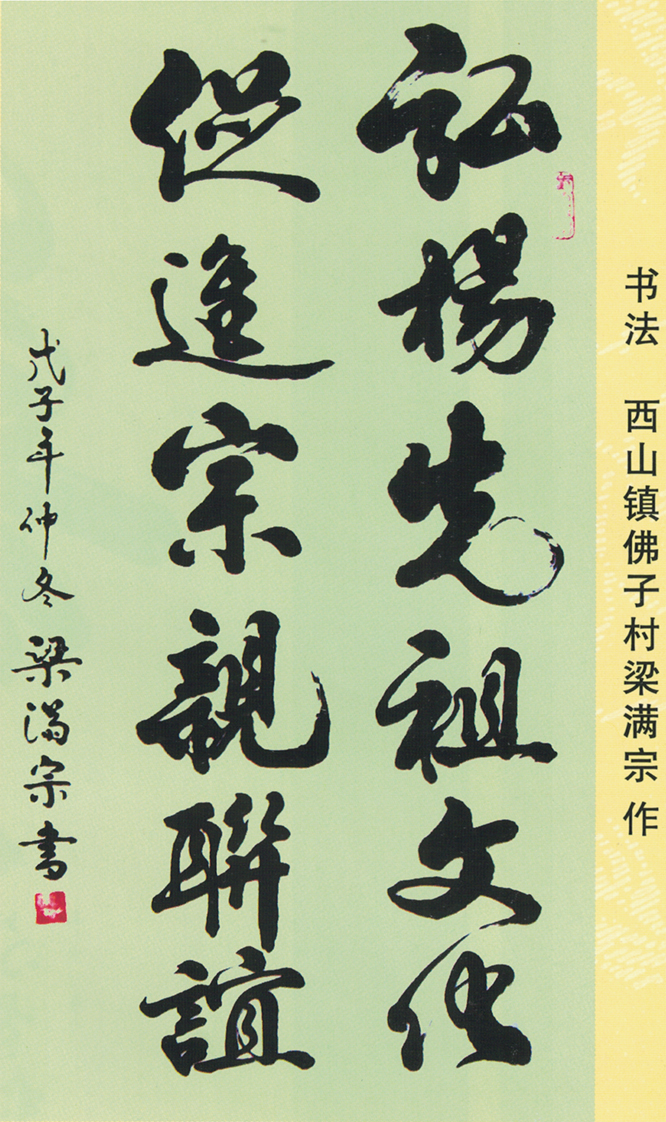 书法 西山镇佛子村梁满宗 作
弘楊先祖文化
促進宗親聯誼
戊子年仲冬 梁满宗書